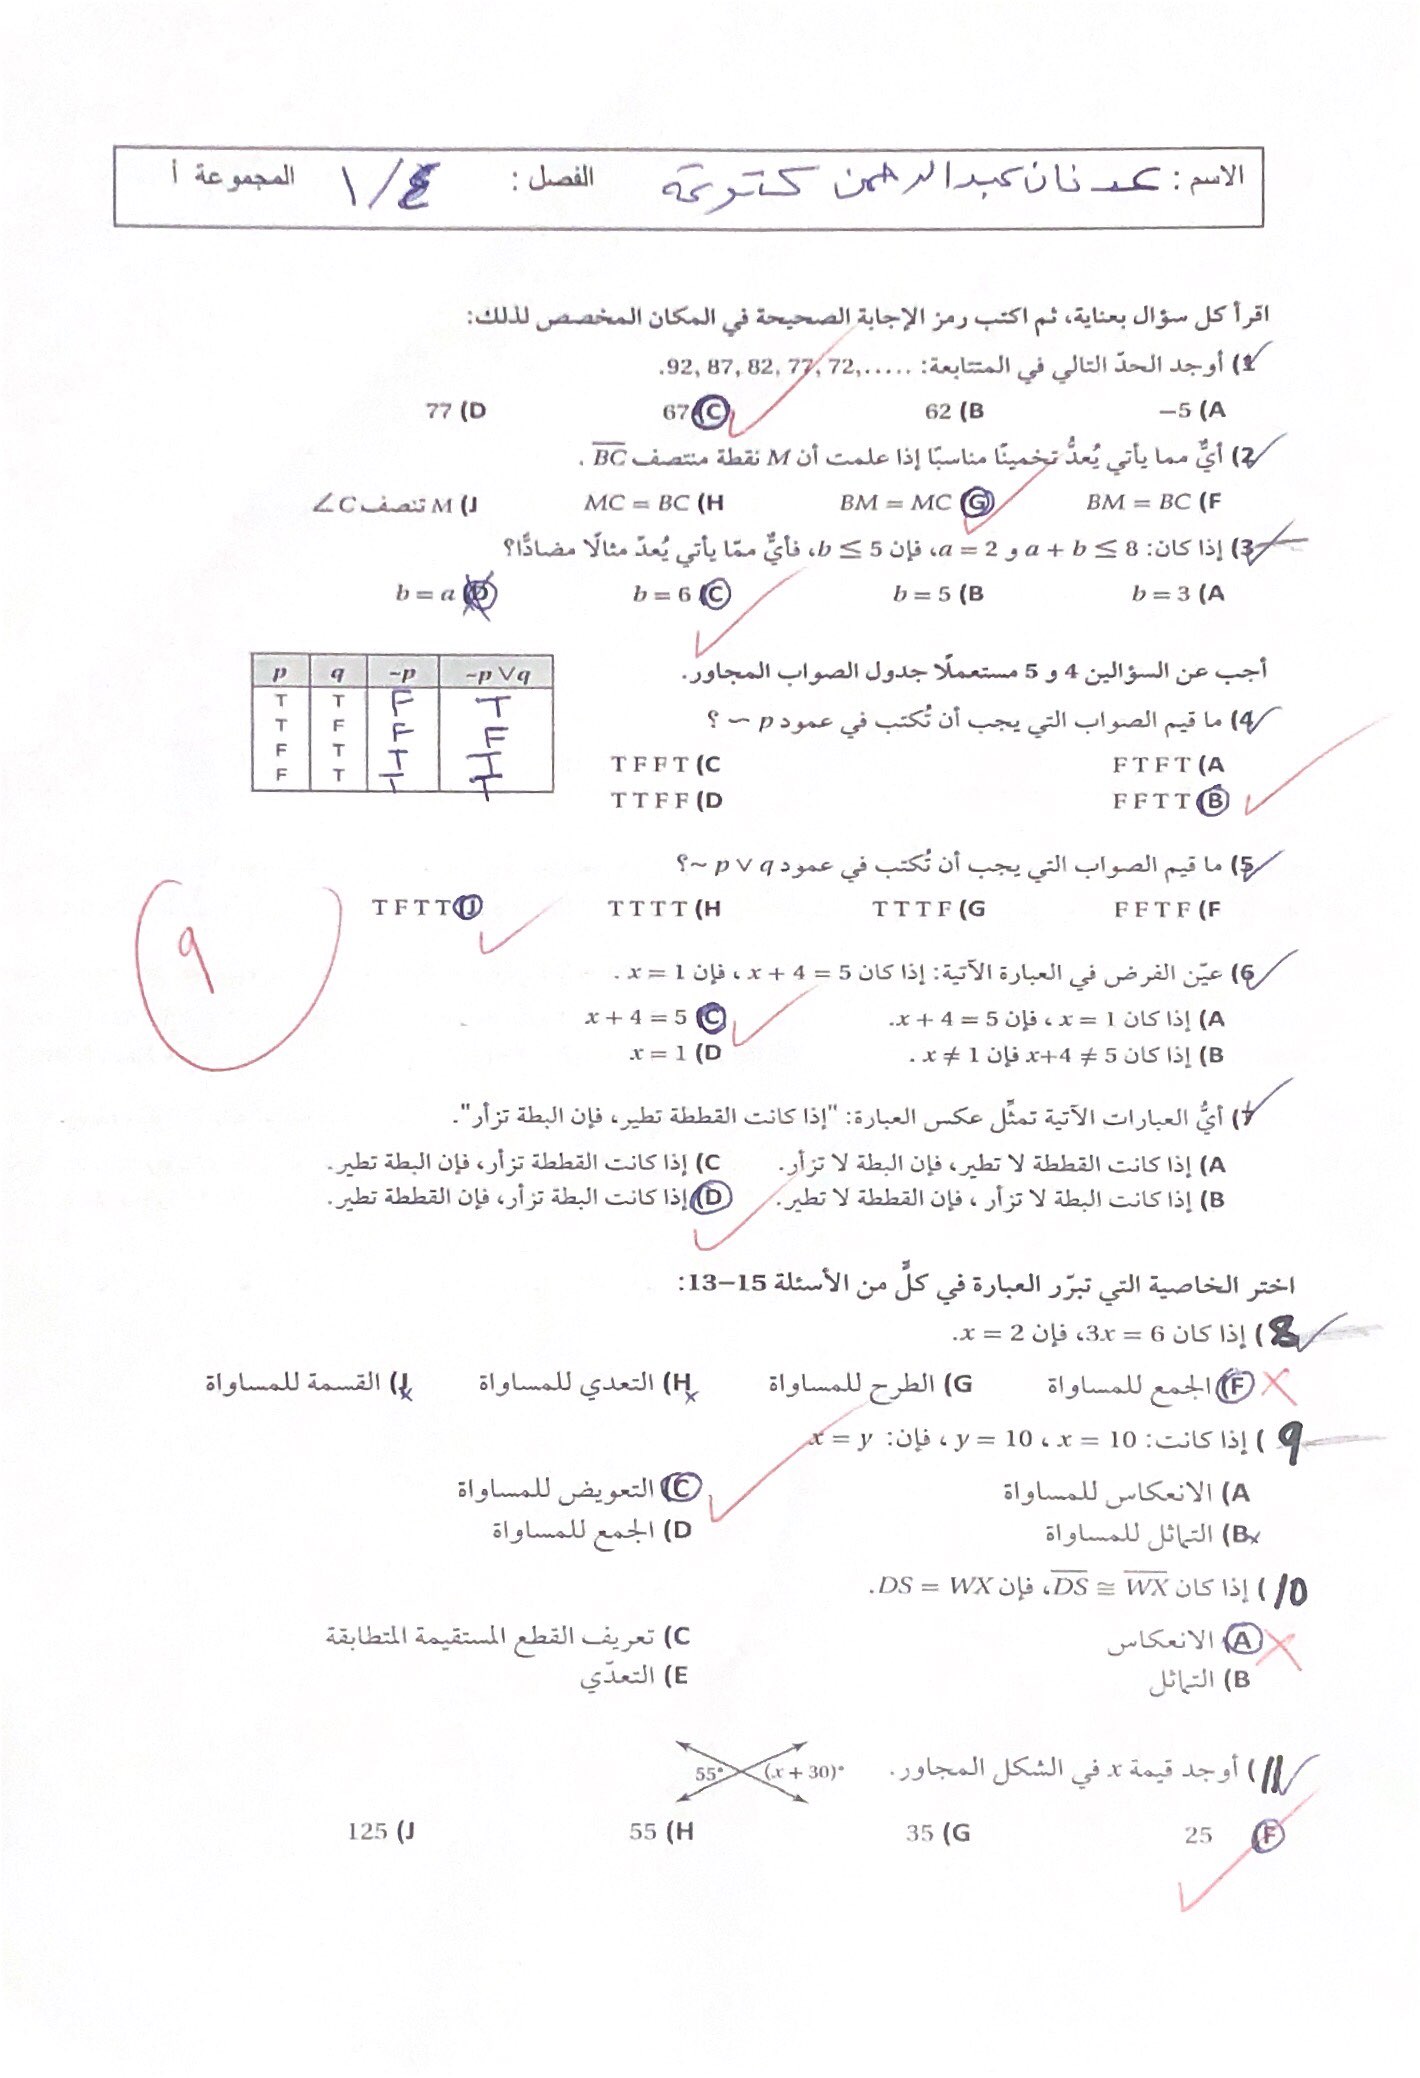 الاسم : عدنان عبدالرحمن الفصل : ١/٤ المجموعة أ
اقرأ كل سؤال بعناية، ثم اكتب رمز الإجابة الصحيحة في المكان المخصص لذلك:
1) أوجد الحدّ التالي في المتتابعة: .....,92, 87, 82, 77, 72.
A) −5 B) 62 C) 67 D) 77
2) أيٌّ مما يأتي يُعدُّ تخمينًا مناسبًا إذا علمت أن M نقطة منتصف BC .
F) BM = BC G) BM = MC H) MC = BC J) M تنصف ∠C
3) إذا كان: a + b ≤ 8 و a = 2، فإن b ≤ 5، فأيٌّ ممّا يأتي يُعدّ مثالًا مضادًّا؟
A) b = 3 B) b = 5 C) b = 6 D) b = a
أجب عن السؤالين 4 و 5 مستعملًا جدول الصواب المجاور.
p q ~p ~p ∨ q
T T F T
T F F F
F T T T
F T T T
4) ما قيم الصواب التي يجب أن تُكتب في عمود p ~ ؟
A) F T F T C) T F F T
B) F F T T D) T T F F
5) ما قيم الصواب التي يجب أن تُكتب في عمود ~ p ∨ q؟
F) F F T F G) T T T F H) T T T T J) T F T T
9
6) عيّن الفرض في العبارة الآتية: إذا كان x + 4 = 5 ، فإن x = 1 .
A) إذا كان x = 1 ، فإن x + 4 = 5. C) x + 4 = 5
B) إذا كان x+4 ≠ 5 فإن x ≠ 1 . D) x = 1
7) أيُّ العبارات الآتية تمثِّل عكس العبارة: "إذا كانت القططة تطير، فإن البطة تزأر".
A) إذا كانت القططة لا تطير، فإن البطة لا تزأر. C) إذا كانت القططة تزأر، فإن البطة تطير.
B) إذا كانت البطة لا تزأر ، فإن القططة لا تطير. D) إذا كانت البطة تزأر، فإن القططة تطير.
اختر الخاصية التي تبرّر العبارة في كلٍّ من الأسئلة 15–13:
8) إذا كان 3x = 6، فإن x = 2.
F) الجمع للمساواة G) الطرح للمساواة H) التعدي للمساواة J) القسمة للمساواة
9) إذا كانت: x = 10 ، y = 10 ، فإن: x = y
A) الانعكاس للمساواة C) التعويض للمساواة
B) التماثل للمساواة D) الجمع للمساواة
10) إذا كان DS ≅ WX، فإن DS = WX.
A) الانعكاس C) تعريف القطع المستقيمة المتطابقة
B) التماثل E) التعدّي
11) أوجد قيمة x في الشكل المجاور. 55° (x + 30)°
F) 25 G) 35 H) 55 J) 125